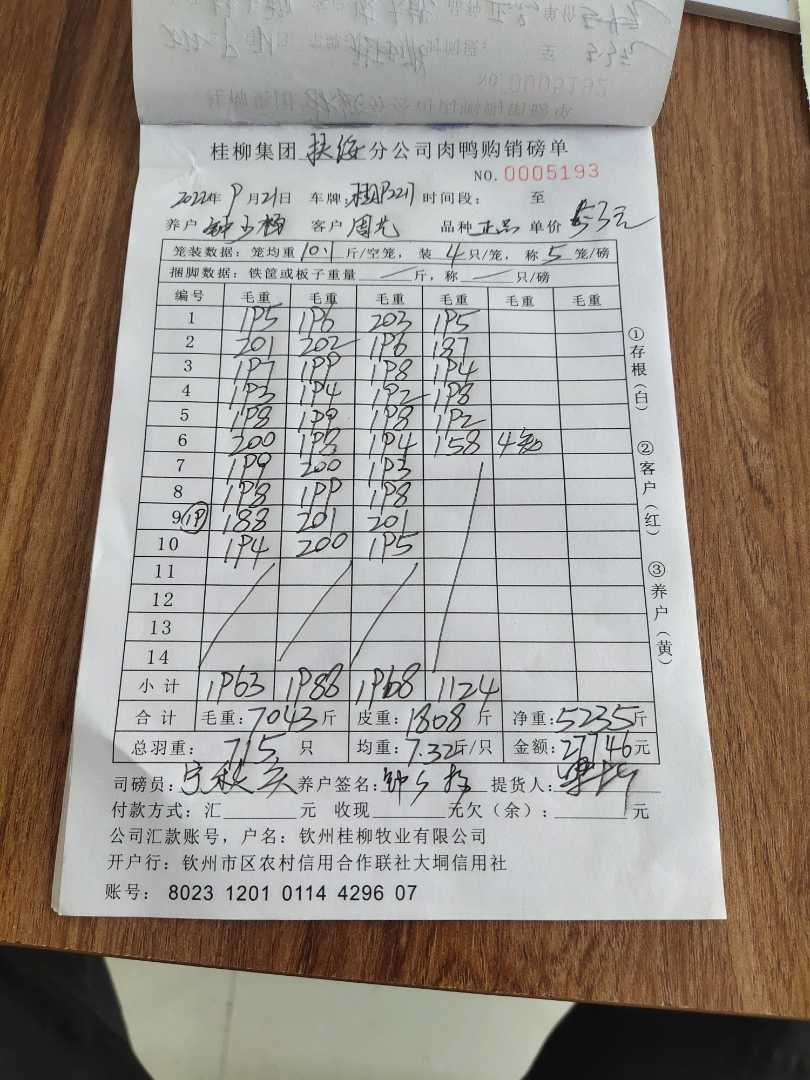 桂柳集团 扶绥 分公司肉鸭购销磅单
NO. 0005193
2022年 9 月21日 车牌: 时间段: 至
养户 钟 客户 周 品种 正品 单价 5.3元
笼装数据: 笼均重 10.1 斤/空笼, 装 4 只/笼, 称 5 笼/磅
捆脚数据: 铁筐或板子重量 斤, 称 只/磅
编号 毛重 毛重 毛重 毛重 毛重 毛重
1 195 196 203 195
2 201 202 196 187
3 197 199 198 194
4 193 194 192 198
5 198 199 198 192
6 200 198 194 158
7 199 200 193
8 198 199 198
9 188 201 201
10 194 200 195
11
12
13
14
小计 1963 1988 1968 1124
合计 毛重: 7043斤 皮重: 1808 斤 净重: 5235斤
总羽重: 715 只 均重: 7.32斤/只 金额: 27746元
司磅员: 养户签名: 钟 提货人:
付款方式: 汇 元 收现 元欠(余): 元
公司汇款账号, 户名: 钦州桂柳牧业有限公司
开户行: 钦州市区农村信用合作联社大垌信用社
账号: 8023 1201 0114 4296 07
①存根(白)
②客户(红)
③养户(黄)
NO.0005192